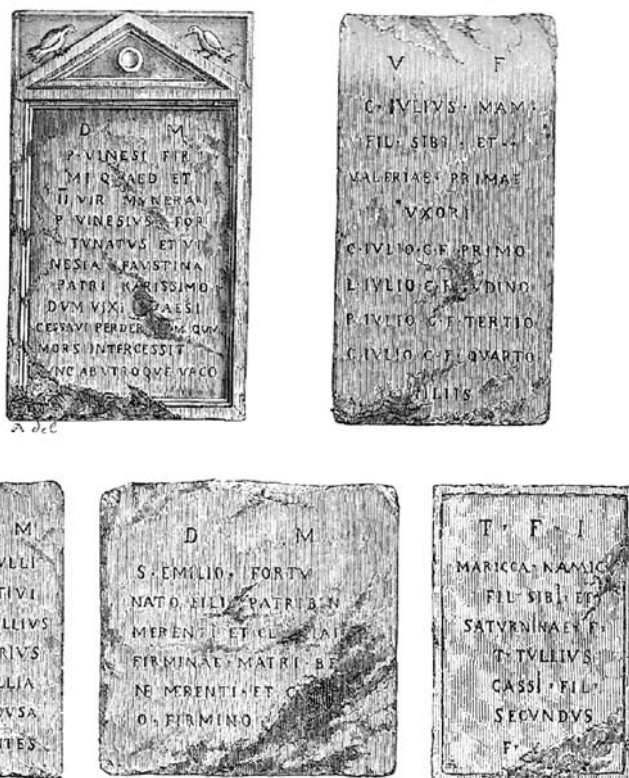 D M
P·VINESI FIR
MI QVAED ET
II VIR MVNERAR
P VINESIVS FOR
TVNATVS ET VI
NESIA FAVSTINA
PATRI KARISSIMO
DVM VIXI
CESSAVI PERDERE
MORS INTERCESSIT
AB VTROQVE VACO
A del
V F
C·IVLIVS·MAM·
FIL·SIBI·ET·
VALERIAE·PRIMAE
VXORI
C·IVLIO·C·F·PRIMO
L·IVLIO·C·F·
P·IVLIO·C·F·TERTIO
C·IVLIO·C·F·QVARTO
M
VLLI
TIVI
LLIVS
RIVS
LIA
VSA
NTES
D M
S·EMILIO·FORTV
NATO FILI PATRI B N
MERENTI ET
FIRMINAE·MATRI BE
NE MERENTI·ET
O·FIRMINO·
T·F·I
MARICCA·NAMIC
FIL·SIBI·ET
SATVRNINAE·F·
T·TVLLIVS
CASSI·FIL·
SECVNDVS
F·